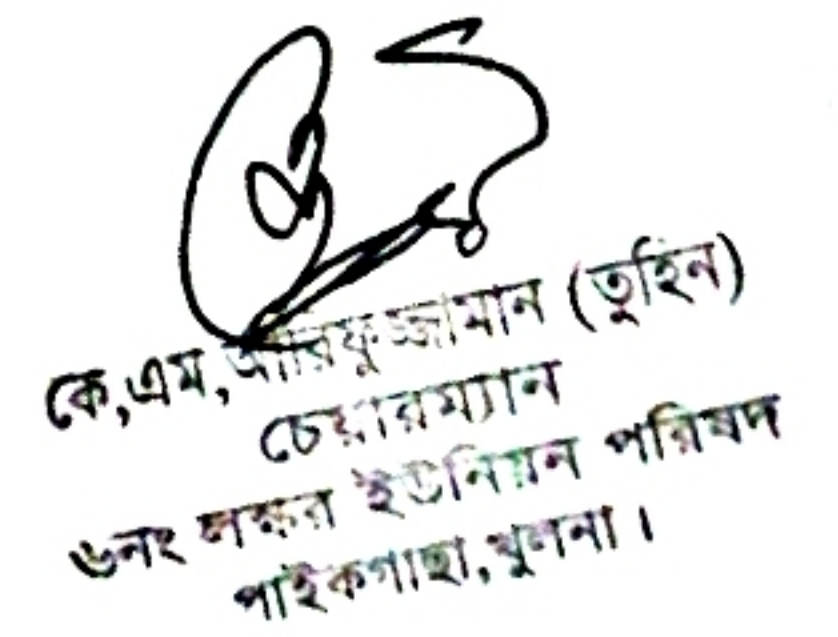 কে,এম,আরিফুজ্জামান (তুহিন)
চেয়ারম্যান
৬নং লস্কর ইউনিয়ন পরিষদ
পাইকগাছা,খুলনা।